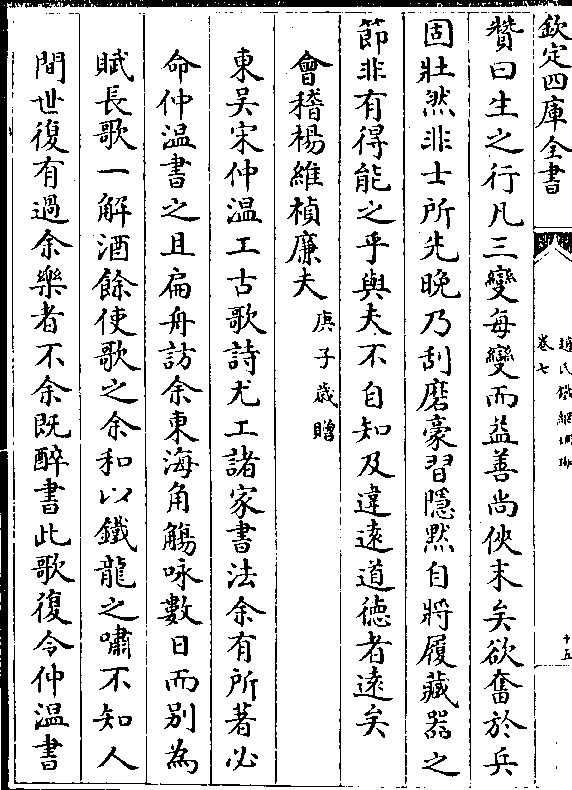 欽定四庫全書
趙氏鐵網珊瑚
卷七
十五
贊曰生之行凡三變每變而益善尚俠末矣欲奮於兵
固壯然非士所先晚乃刮磨豪習隱默自將履藏器之
節非有得能之乎與夫不自知及違遠道徳者逺矣
會稽楊維楨廉夫
庚子歲贈
東吴宋仲温工古歌詩尤工諸家書法余有所著必
命仲温書之且扁舟訪余東海角觴咏數日而别為
賦長歌一解酒餘使歌之余和以鐵龍之嘯不知人
間世復有過余樂者不余既醉書此歌復令仲温書